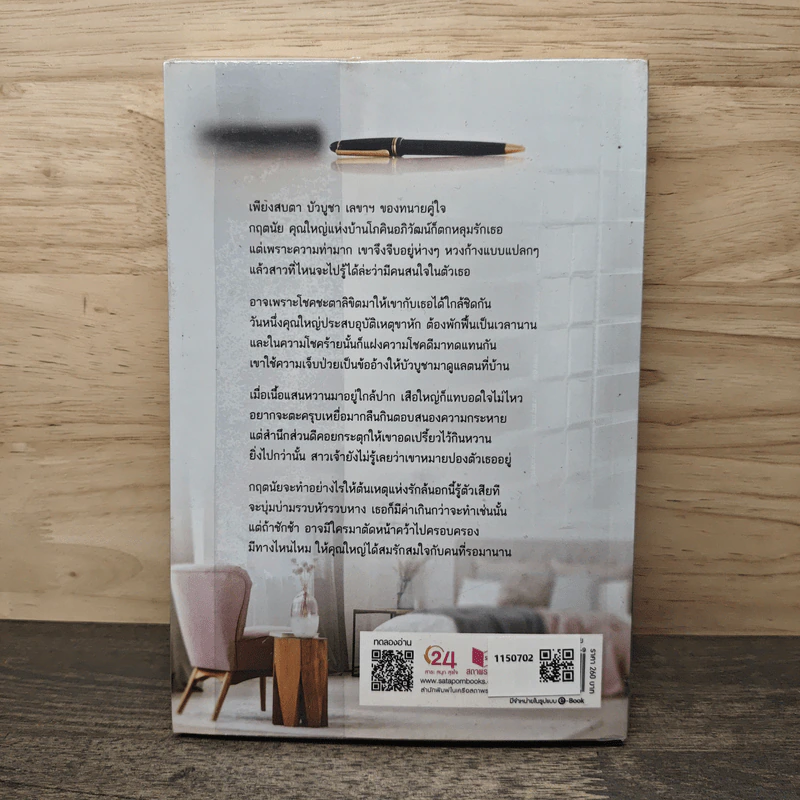 เพียงสบตา บัวบูชา เลขาฯ ของทนายคู่ใจ
กฤตนัย คุณใหญ่แห่งบ้านโภคินอภิวัฒน์ก็ตกหลุมรักเธอ
แต่เพราะความท่ามาก เขาจึงจีบอยู่ห่างๆ หวงก้างแบบแปลกๆ
แล้วสาวที่ไหนจะไปรู้ได้ล่ะว่ามีคนสนใจในตัวเธอ
อาจเพราะโชคชะตาลิขิตมาให้เขากับเธอได้ใกล้ชิดกัน
วันหนึ่งคุณใหญ่ประสบอุบัติเหตุขาหัก ต้องพักฟื้นเป็นเวลานาน
และในความโชคร้ายนั้นก็แฝงความโชคดีมาทดแทนกัน
เขาใช้ความเจ็บป่วยเป็นข้ออ้างให้บัวบูชามาดูแลตนที่บ้าน
เมื่อเนื้อแสนหวานมาอยู่ใกล้ปาก เสือใหญ่ก็แทบอดใจไม่ไหว
อยากจะตะครุบเหยื่อมากลืนกินตอบสนองความกระหาย
แต่สำนึกส่วนดีคอยกระตุกให้เขาอดเปรี้ยวไว้กินหวาน
ยิ่งไปกว่านั้น สาวเจ้ายังไม่รู้เลยว่าเขาหมายปองตัวเธออยู่
กฤตนัยจะทำอย่างไรให้ต้นเหตุแห่งรักล้นอกนี้รู้ตัวเสียที
จะบุ่มบ่ามรวบหัวรวบหาง เธอก็มีค่าเกินกว่าจะทำเช่นนั้น
แต่ถ้าชักช้า อาจมีใครมาตัดหน้าคว้าไปครอบครอง
มีทางไหนไหม ให้คุณใหญ่ได้สมรักสมใจกับคนที่รอมานาน
ทดลองอ่าน
24
สาระ สนุก สุขใจ
สถาพร
1150702
www.satapornbooks.
สำนักพิมพ์ในเครือสถาพร
มีจำหน่ายในรูปแบบ e-Book
ราคา 260 บาท